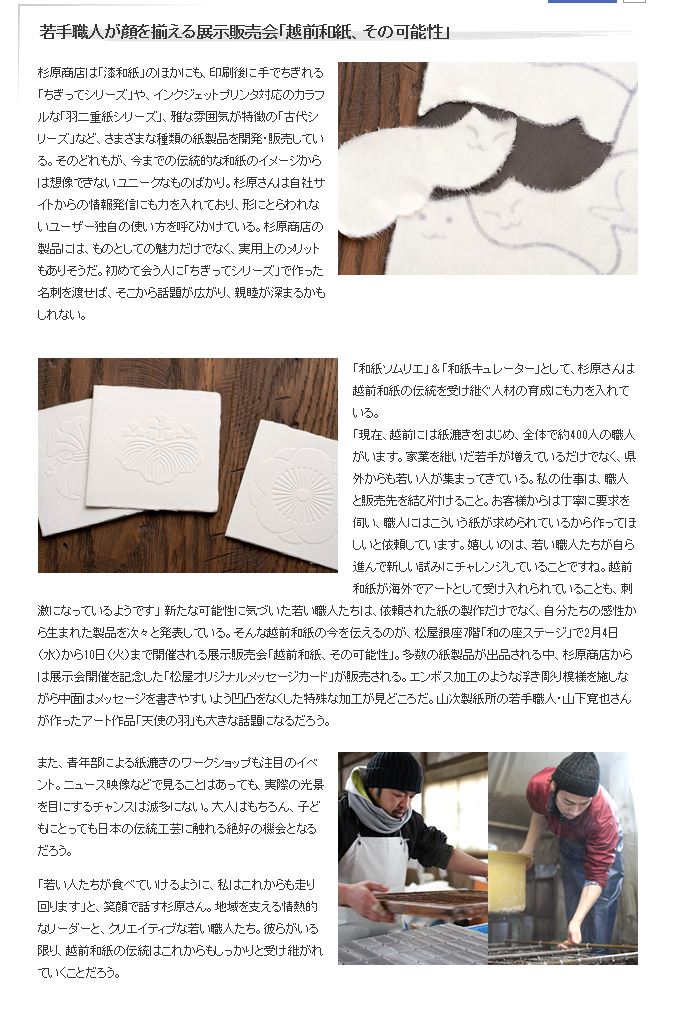 若手職人が顔を揃える展示販売会「越前和紙、その可能性」
杉原商店は「漆和紙」のほかにも、印刷後に手でちぎれる
「ちぎってシリーズ」や、インクジェットプリンタ対応のカラフ
ルな「羽二重紙シリーズ」、雅な雰囲気が特徴の「古代シ
リーズ」など、さまざまな種類の紙製品を開発・販売してい
る。そのどれもが、今までの伝統的な和紙のイメージから
は想像できないユニークなものばかり。杉原さんは自社サ
イトからの情報発信にも力を入れており、形にとらわれな
いユーザー独自の使い方を呼びかけている。杉原商店の
製品には、ものとしての魅力だけでなく、実用上のメリット
もありそうだ。初めて会う人に「ちぎってシリーズ」で作った
名刺を渡せば、そこから話題が広がり、親睦が深まるかも
しれない。
「和紙ソムリエ」＆「和紙キュレーター」として、杉原さんは
越前和紙の伝統を受け継ぐ人材の育成にも力を入れて
いる。
「現在、越前には紙漉きをはじめ、全体で約400人の職人
がいます。家業を継いだ若手が増えているだけでなく、県
外からも若い人が集まってきている。私の仕事は、職人
と販売先を結び付けること。お客様からは丁寧に要求を
伺い、職人にはこういう紙が求められているから作ってほ
しいと依頼しています。嬉しいのは、若い職人たちが自ら
進んで新しい試みにチャレンジしていることですね。越前
和紙が海外でアートとして受け入れられていることも、刺
激になっているようです」 新たな可能性に気づいた若い職人たちは、依頼された紙の製作だけでなく、自分たちの感性か
ら生まれた製品を次々と発表している。そんな越前和紙の今を伝えるのが、松屋銀座7階「和の座ステージ」で2月4日
（水）から10日（火）まで開催される展示販売会「越前和紙、その可能性」。多数の紙製品が出品される中、杉原商店から
は展示会開催を記念した「松屋オリジナルメッセージカード」が販売される。エンボス加工のような浮き彫り模様を施しな
がら中面はメッセージを書きやすいよう凹凸をなくした特殊な加工が見どころだ。山次製紙所の若手職人・山下寛也さん
が作ったアート作品「天使の羽」も大きな話題になるだろう。
また、青年部による紙漉きのワークショップも注目のイベ
ント。ニュース映像などで見ることはあっても、実際の光景
を目にするチャンスは滅多にない。大人はもちろん、子ど
もにとっても日本の伝統工芸に触れる絶好の機会となる
だろう。
「若い人たちが食べていけるように、私はこれからも走り
回ります」と、笑顔で話す杉原さん。地域を支える情熱的
なリーダーと、クリエイティブな若い職人たち。彼らがいる
限り、越前和紙の伝統はこれからもしっかりと受け継がれ
ていくことだろう。